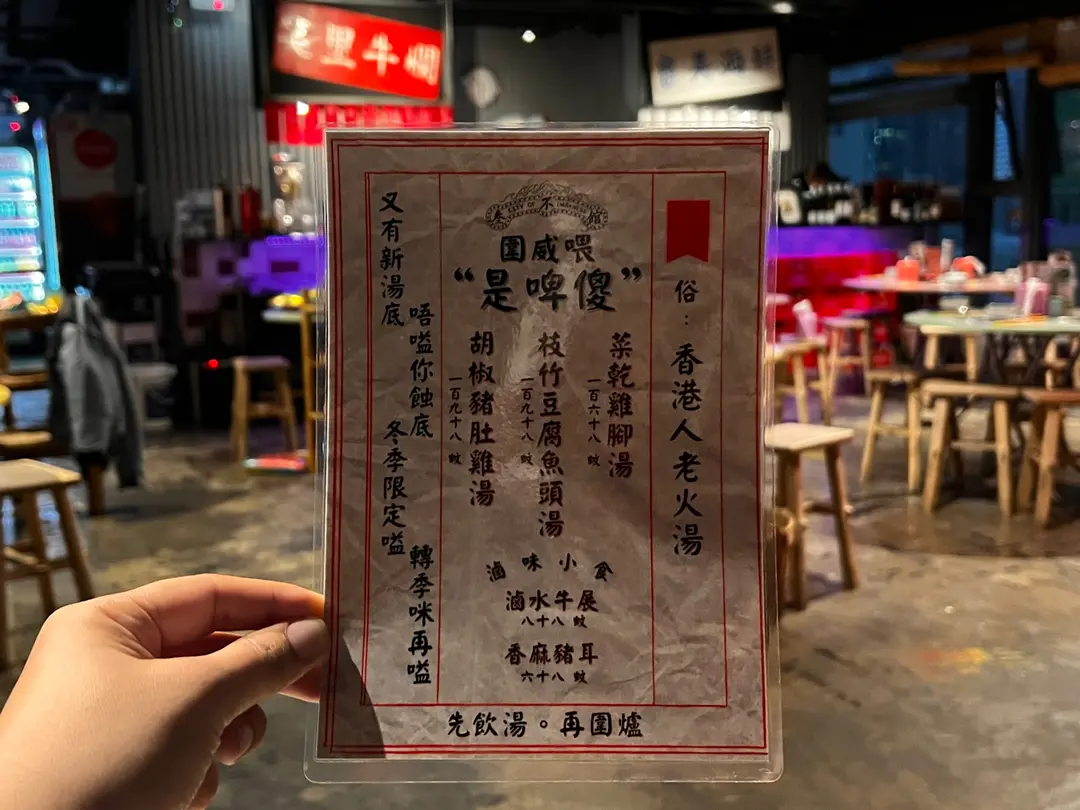 叁不館
圍威喂
“是啤傻”
俗：香港人老火湯
菜乾雞腳湯
一百六十八 蚊
枝竹豆腐魚頭湯
一百九十八 蚊
胡椒豬肚雞湯
一百九十八 蚊
滷味小食
滷水牛展
八十八 蚊
香麻豬耳
六十八 蚊
又有新湯底
唔嗌你蝕底
冬季限定嗌
轉季咪再嗌
先飲湯。再圍爐